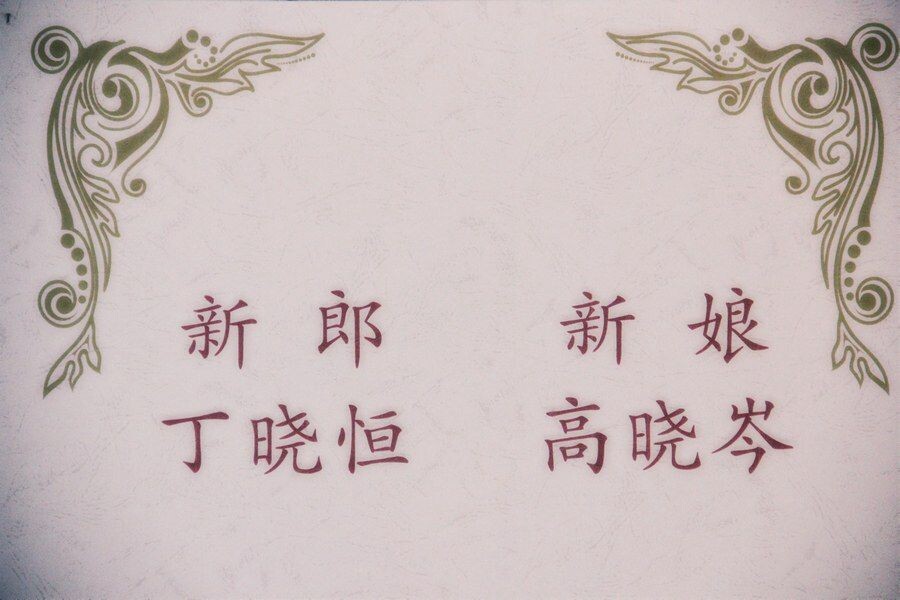 新郎 新娘
丁晓恒 高晓岑